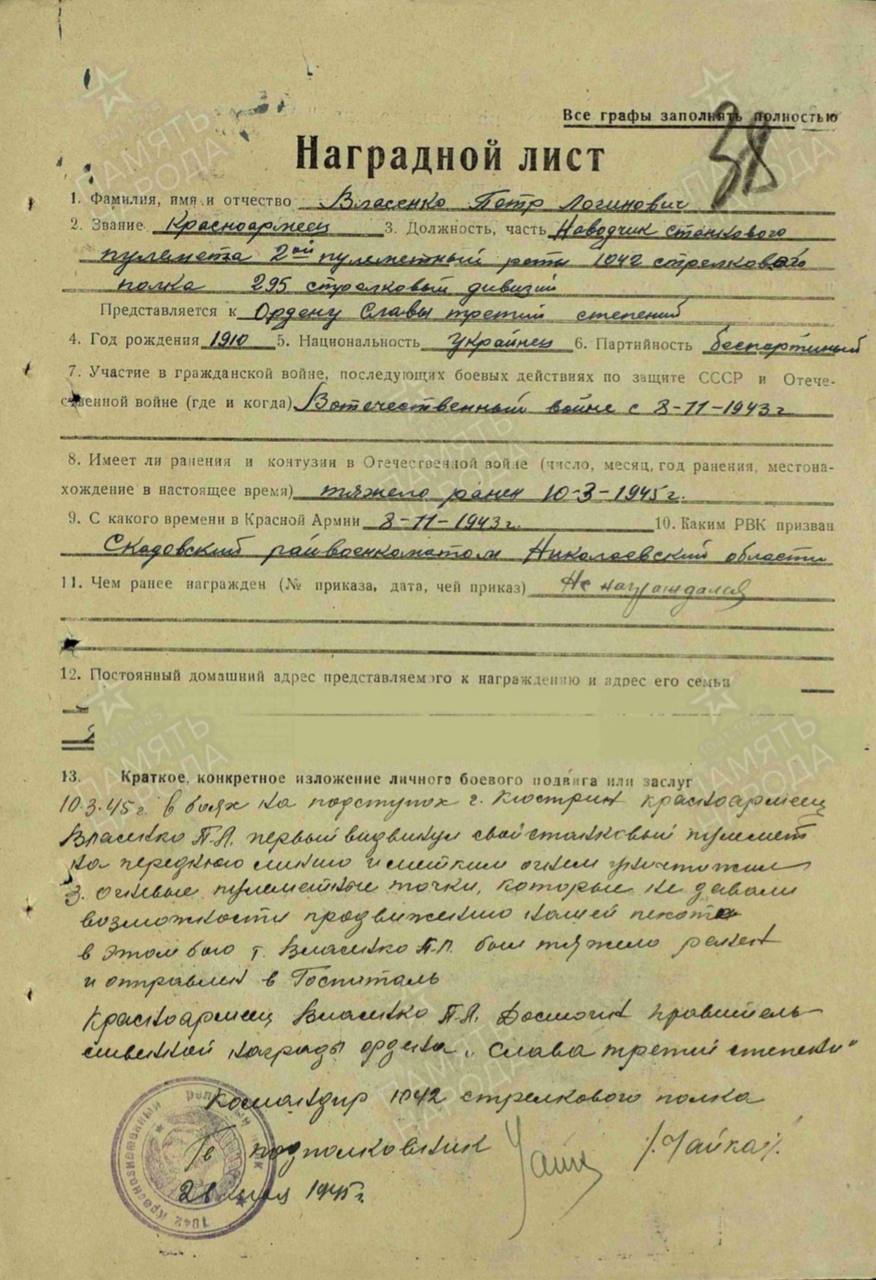 Все графы заполнять полностью
38
Наградной лист
1. Фамилия, имя и отчество Власенко Петр Логинович
2. Звание Красноармеец 3. Должность, часть Наводчик станкового
пулемета 2ой пулеметный роты 1042 стрелкового
полка 295 стрелковый дивизий
Представляется к Ордену Славы третий степений
4. Год рождения 1910 5. Национальность Украйнец 6. Партийность беспартиный
7. Участие в гражданской войне, последующих боевых действиях по защите СССР и Отече-
ственной войне (где и когда) Вотечественный войне с 8-11-1943г
8. Имеет ли ранения и контузии в Отечественной войне (число, месяц, год ранения, местона-
хождение в настоящее время) тяжело ранен 10-3-1945г.
9. С какого времени в Красной Армии 8-11-1943г. 10. Каким РВК призван
Скадовский райвоенкоматом Николаевский области
11. Чем ранее награжден (№ приказа, дата, чей приказ) Не награждался
12. Постоянный домашний адрес представляемого к награждению и адрес его семьи
13. Краткое, конкретное изложение личного боевого подвига или заслуг
10.3.45г. в боях на подступах г. Кюстрин красноармеец
Власенко П.Л. первый выдвинул свой станковый пулемет
на переднюю линию и метким огнем уничтожил
3. огневые пулеметные точки, которые не давали
возможности продвижению нашей пехоте
в этом бою т. Власенко П.Л. был тяжело ранен
и отправлен в Госпиталь
Красноармеец Власенко П.Л. достоин правитель-
ственной награды ордена "Слава третий степени"
Командир 1042 стрелкового полка
Гв подполковник /Чайка/.
28 мая 1945г.
1042 Краснознаменный
ПАМЯТЬ НАРОДА